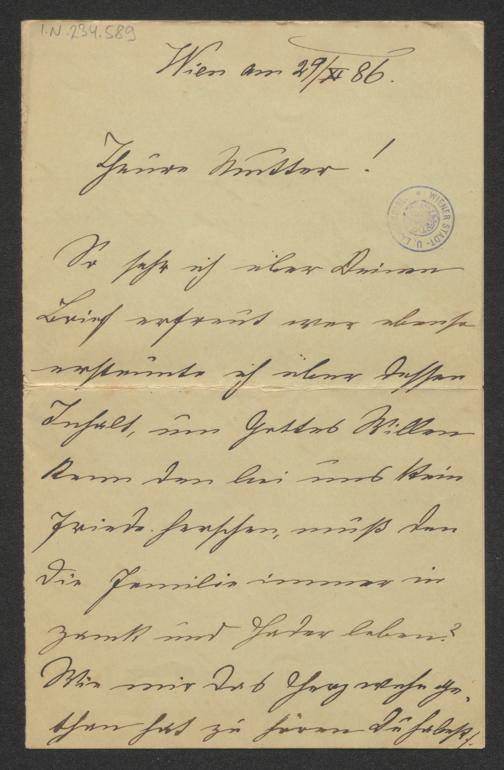 I.N. 234.589
Wien am 29/XI 86.
Theure Mutter!
WIENER STADT- U. L.
So sehr ich über Deinen
Brief erfreut war ebenso
erstaunte ich über dessen
Inhalt, um Gottes Willen
kann den bei uns kein
Friede herschen, muß den
die Familie immer in
zank und Hader leben?
Wie mir das Herz wehe ge-
than hat zu hören Du habest